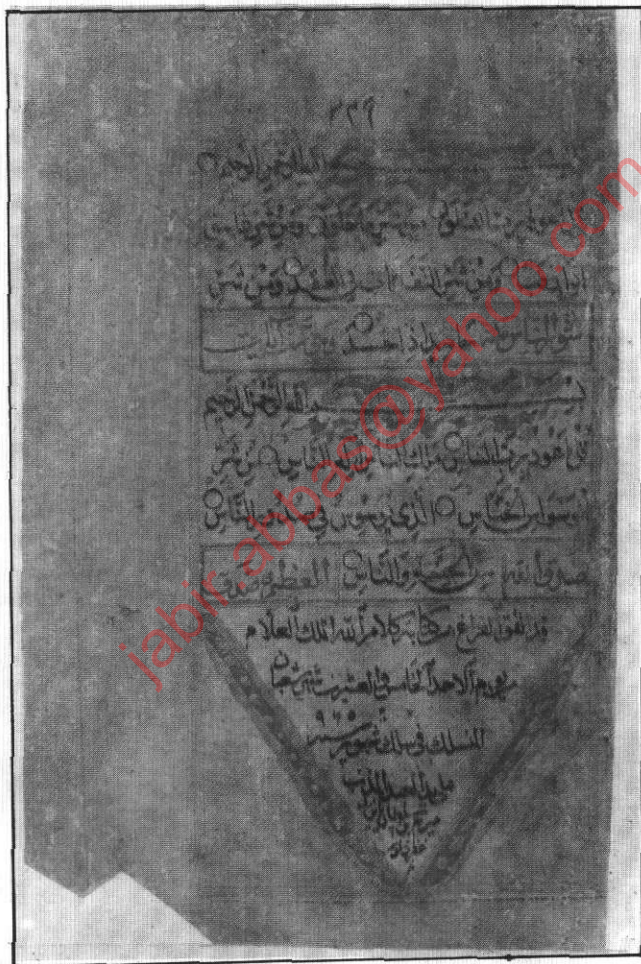 ٢٣٩
بسم الله الرحمن الرحيم
اعوذ برب الفلق من شر ما خلق ومن شر غاسق
اذا وقب ومن شر النفاثات في العقد ومن شر
سورة الناس حاسد اذا حسد ست آيات
بسم الله الرحمن الرحيم
قل اعوذ برب الناس ملك الناس اله الناس من شر
الوسواس الخناس الذي يوسوس في صدور الناس
صدق الله من الجنة والناس العظيم وصدق
قد اتفق الفراغ من كتابة كلام الله الملك العلام
يوم الاحد الخامس والعشرين شهر شعبان
المنسلك في سلك شهور سنه ٩٦٥
على يد العبد المذنب
jabir.abbas@yahoo.com